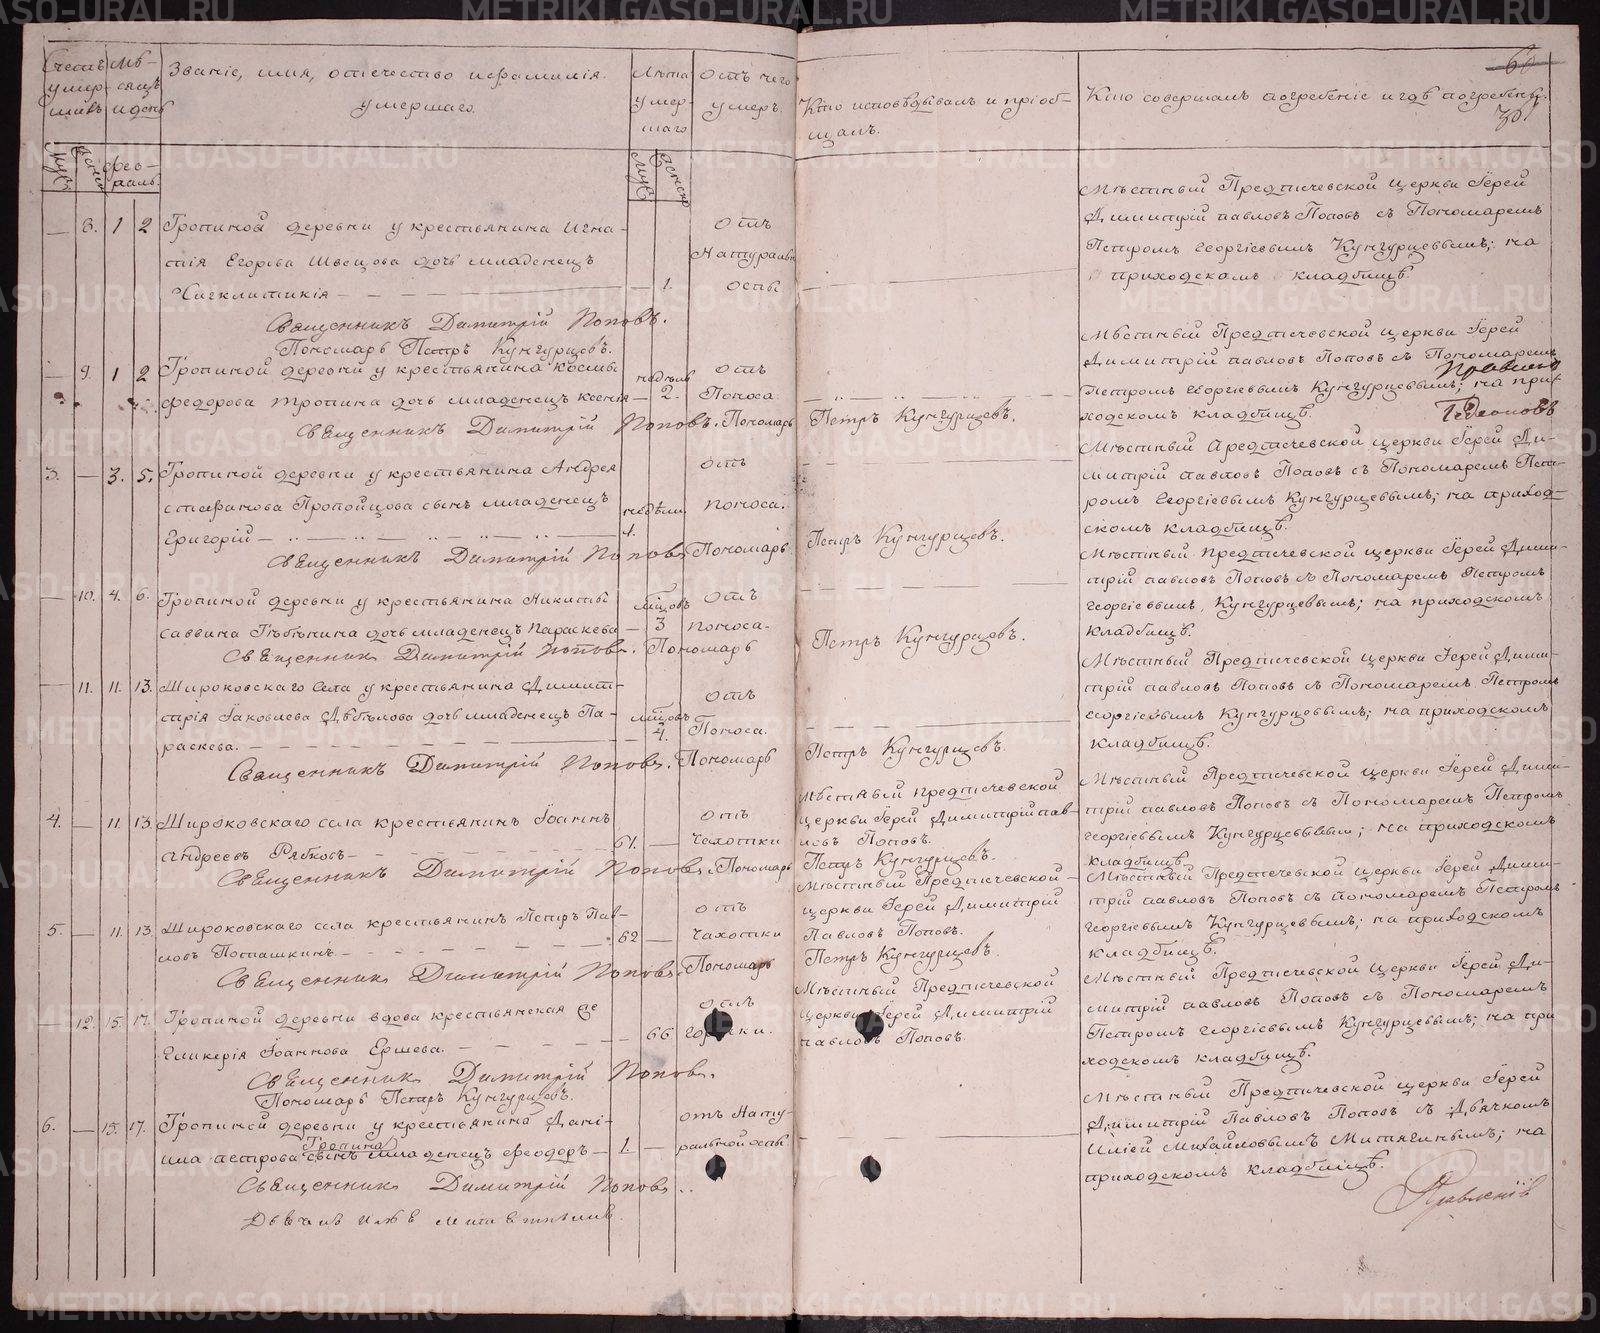 Счетъ умер-шихъ
Мѣ-сяцъ и день
Званіе, имя, отечество и фамилія умершаго.
Лѣта умер-шаго
Отъ чего умеръ.
Кто исповѣдывалъ и пріоб-щалъ.
Кто совершалъ погребеніе и гдѣ погребены.
60
30
Фев-раль.
— 8. 1 2 Тропиной деревни у крестьянина Игна-
тія Егорова Швецова дочь младенецъ
Сигклитикія — 1.
Отъ
Натуральн
оспы
Мѣстный Предтичевской церкви Іерей
Димитрій Павловъ Поповъ съ Пономаремъ
Петромъ Георгіевымъ Кунгурцевымъ; на
приходскомъ кладбищѣ.
Священникъ Димитрій Поповъ.
Пономарь Петръ Кунгурцевъ.
— 9. 1 2 Тропиной деревни у крестьянина Космы
Федорова Тропина дочь младенецъ Ксенія —
недѣль
2.
Отъ
Поноса
Мѣстный Предтечевской церкви Іерей
Димитрій Павловъ Поповъ съ Пономаремъ
Петромъ Георгіевымъ Кунгурцевымъ; на при-
ходскомъ кладбищѣ.
Священникъ Димитрій Поповъ. Пономарь Петръ Кунгурцевъ.
3. — 3. 5. Тропиной деревни у крестьянина Андрея
Стафанова Пропойцова сынъ младенецъ
Григорій —
недѣли
Отъ
поноса.
Мѣстный Предтечевской церкви Іерей Ди-
митрій Павловъ Поповъ съ Пономаремъ Пет-
ромъ Георгіевымъ Кунгурцевымъ; на приход-
скомъ кладбищѣ.
Священникъ Димитрій Поповъ Пономарь Петръ Кунгурцевъ.
— 10. 4. 6. Тропиной деревни у крестьянина Никиты
Саввина дочь младенецъ Параскева —
мцовъ
3
Отъ
поноса.
Мѣстный Предтечевской церкви Іерей Дими-
трій Павловъ Поповъ съ Пономаремъ Петромъ
Георгіевымъ Кунгурцевымъ; на приходскомъ
кладбищѣ.
Священникъ Димитрій Поповъ. Пономарь Петръ Кунгурцовъ.
— 11. 11. 13. Широковскаго села у крестьянина Димит-
трія Іаковлева Дѣбѣлова дочь младенецъ Па-
раскева. —
мцовъ
4.
Отъ
Поноса.
Мѣстный Предтичевской церкви Іерей Дими-
трій Павловъ Поповъ съ Пономаремъ Петромъ
Георгіевымъ Кунгурцевымъ; на приходскомъ
кладбищѣ.
Священникъ Димитрій Поповъ. Пономарь Петръ Кунгурцевъ.
4. — 11. 13. Широковскаго села крестьянинъ Іоаннъ
Андреевъ Рябковъ — 61. —
Отъ
Чахотки
Мѣстный Предтечевской
церкви Іерей Димитрій Пав-
ловъ Поповъ.
Мѣстный Предтечевской церкви Іерей Дими-
трій Павловъ Поповъ съ Пономаремъ Петромъ
Георгіевымъ Кунгурцевымъ; на приходскомъ
кладбищѣ.
Священникъ Димитрій Поповъ. Пономарь Петръ Кунгурцевъ.
5. — 11. 13. Широковскаго села крестьянинъ Петръ Пав-
ловъ Поташкинъ — 62 —
Отъ
Чахотки
Мѣстный Предтечевской
церкви Іерей Димитрій
Павловъ Поповъ.
Мѣстный Предтечевской церкви Іерей Дими-
трій Павловъ Поповъ съ Пономаремъ Петромъ
Георгіевымъ Кунгурцевымъ; на приходскомъ
кладбищѣ.
Священникъ Димитрій Поповъ. Пономарь Петръ Кунгурцевъ.
— 12. 15. 17. Тропиной деревни вдова крестьянская
Гликерія Іоаннова Ершева. — 66
Отъ
горячки.
Мѣстный Предтечевской
церкви Іерей Димитрій
Павловъ Поповъ.
Мѣстный Предтечевской церкви Іерей Ди-
митрій Павловъ Поповъ съ Пономаремъ
Петромъ Георгіевымъ Кунгурцевымъ; на при
ходскомъ кладбищѣ.
Священникъ Димитрій Поповъ.
Пономарь Петръ Кунгурцевъ.
6. — 15. 17. Тропиной деревни у крестьянина Дані-
ила Петрова Тропина сынъ младенецъ Феодоръ — 1. —
отъ Нату-
ральной оспы
Мѣстный Предтичевской церкви Іерей
Димитрій Павловъ Поповъ съ Дьячкомъ
Иліей Михайловымъ Митягинымъ; на
приходскомъ кладбищѣ.
Священникъ Димитрій Поповъ.
METRIKI.GASO-URAL.RU